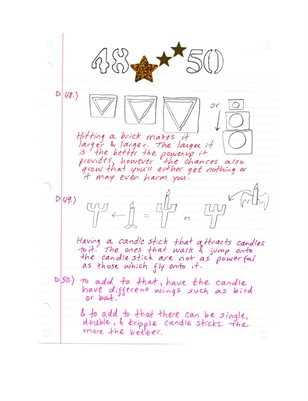 48 50
D 48.)
or
Hitting a brick makes it
larger & larger. The larger it
is the better the powerup it
provides, however the chances also
grow that you'll either get nothing or
it may even harm you.
D 49.)
or
Having a candle stick that attracts candles
to it. The ones that walk & jump onto
the candle stick are not as powerful
as those which fly onto it.
D 50.) To add to that, have the candle
have different wings such as bird
or bat.
& to add to that there can be single,
double, & tripple candle sticks. The
more the better.